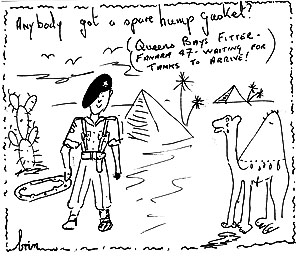 Anybody got a spare hump gasket?
(Queens Bays Fitter -
Fanara 47 - waiting for
tanks to arrive!)
brin